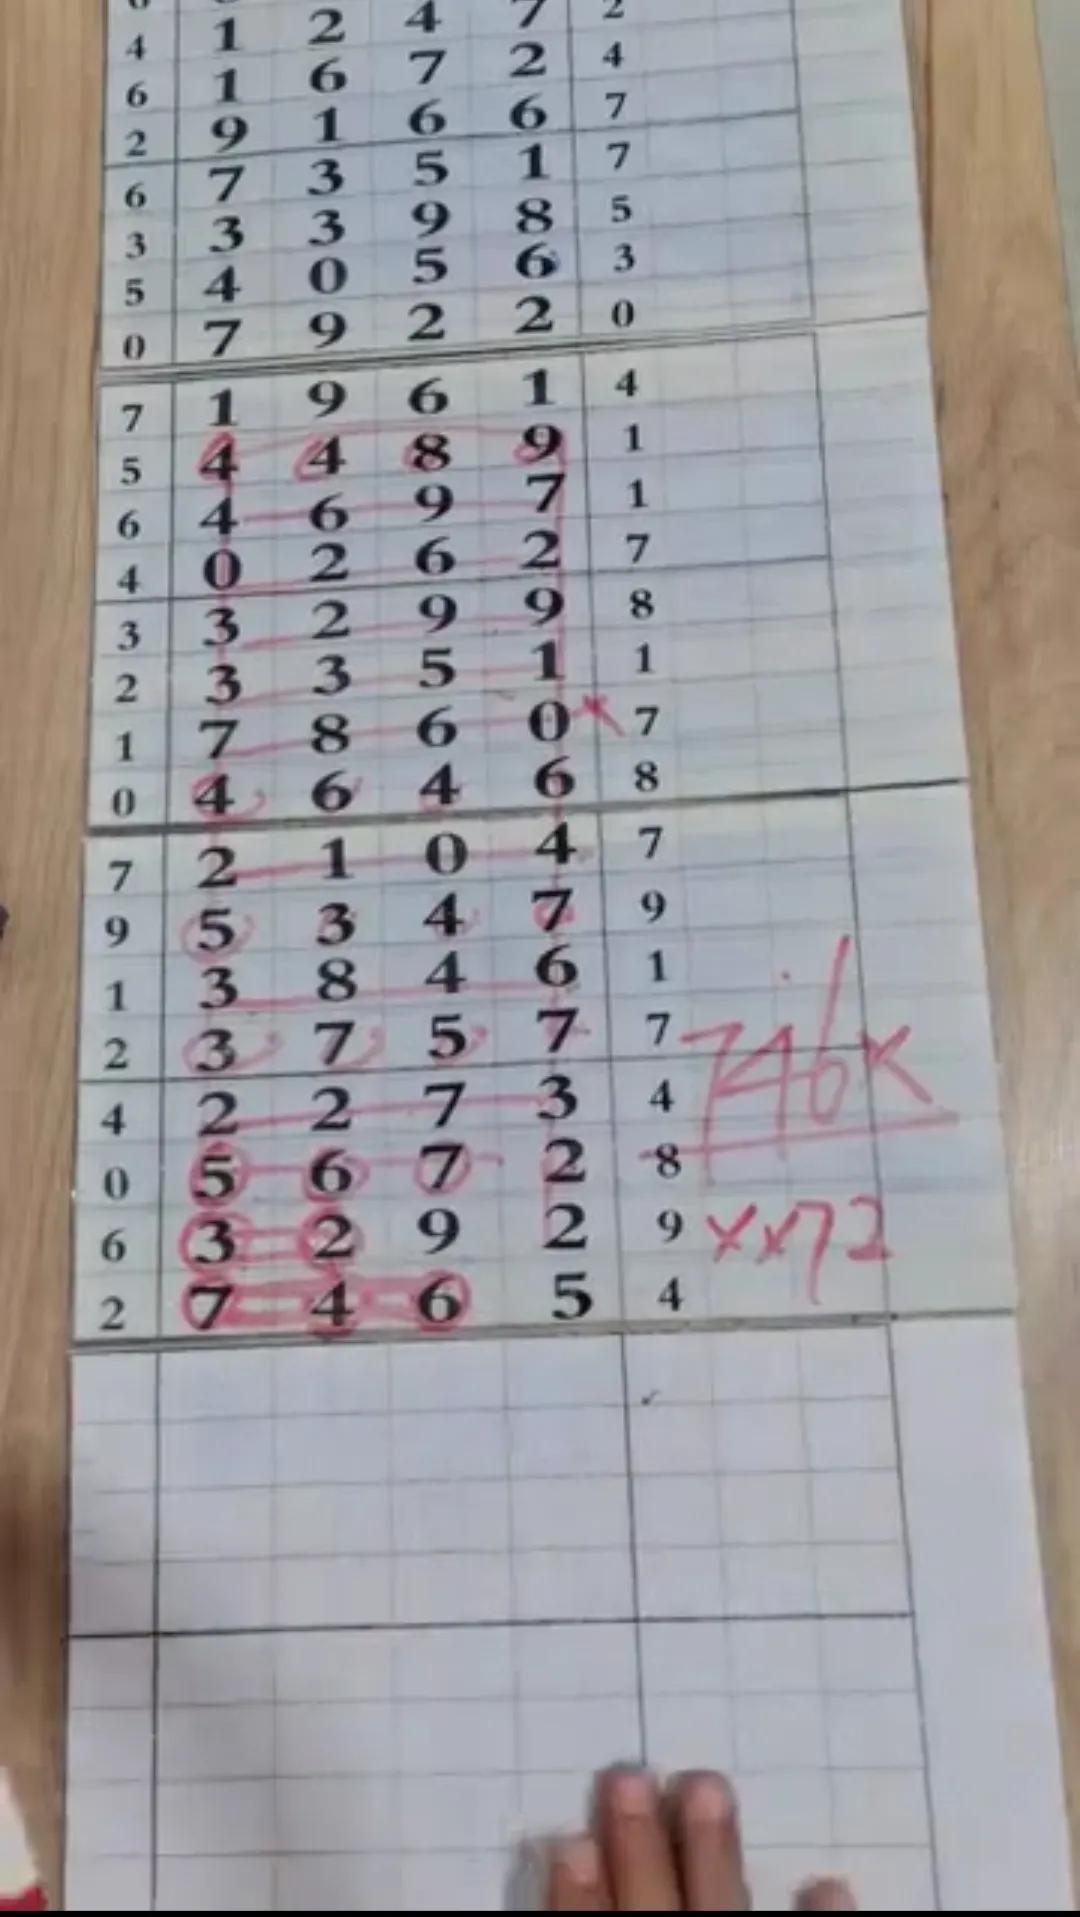 4 1 2 4 7 2
6 1 6 7 2 4
2 9 1 6 6 7
6 7 3 5 1 7
3 3 3 9 8 5
5 4 0 5 6 3
0 7 9 2 2 0
7 1 9 6 1 4
5 4 4 8 9 1
6 4 6 9 7 1
4 0 2 6 2 7
3 3 2 9 9 8
2 3 3 5 1 1
1 7 8 6 0 x 7
0 4 6 4 6 8
7 2 1 0 4 7
9 5 3 4 7 9
1 3 8 4 6 1
2 3 7 5 7 7 746x
4 2 2 7 3 4
0 5 6 7 2 8
6 3 2 9 2 9 xx72
2 7 4 6 5 4